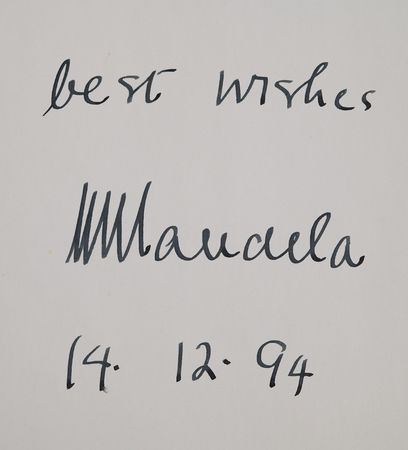 best wishes
NMandela
14. 12. 94